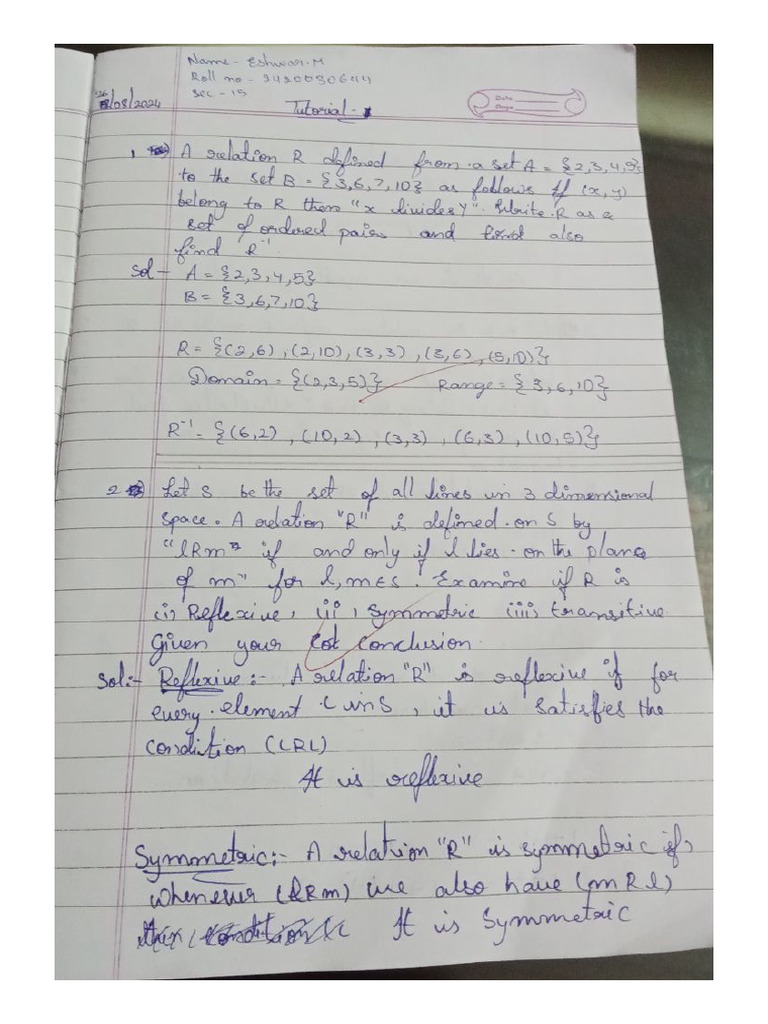 Name - Eshwar.M
Roll no - 2420030644
Sec - 15
/08/2024
Tutorial -
Date
Page
1. A relation R defined from a set A = {2,3,4,5}
to the set B = {3,6,7,10} as follows if (x, y)
belong to R then "x divides Y". Write R as a
set of ordered pairs and find also
find R⁻¹
Sol - A = {2,3,4,5}
B = {3,6,7,10}
R = {(2,6), (2,10), (3,3), (3,6), (5,10)}
Domain = {(2,3,5)} Range = {3,6,10}
R⁻¹ = {(6,2), (10,2), (3,3), (6,3), (10,5)}
2 Let S be the set of all lines in 3 dimensional
space. A relation "R" is defined on S by
"lRm" if and only if l lies on the plane
of m" for l, m ∈ S. Examine if R is
(i) Reflexive, (ii), Symmetric (iii) transitive
Given your conclusion.
Sol:- Reflexive:- A relation "R" is reflexive if for
every element L in S, it is satisfies the
condition (LRL)
It is reflexive
Symmetric:- A relation "R" is symmetric if,
whenever (lRm) we also have (mRl)
It is Symmetric